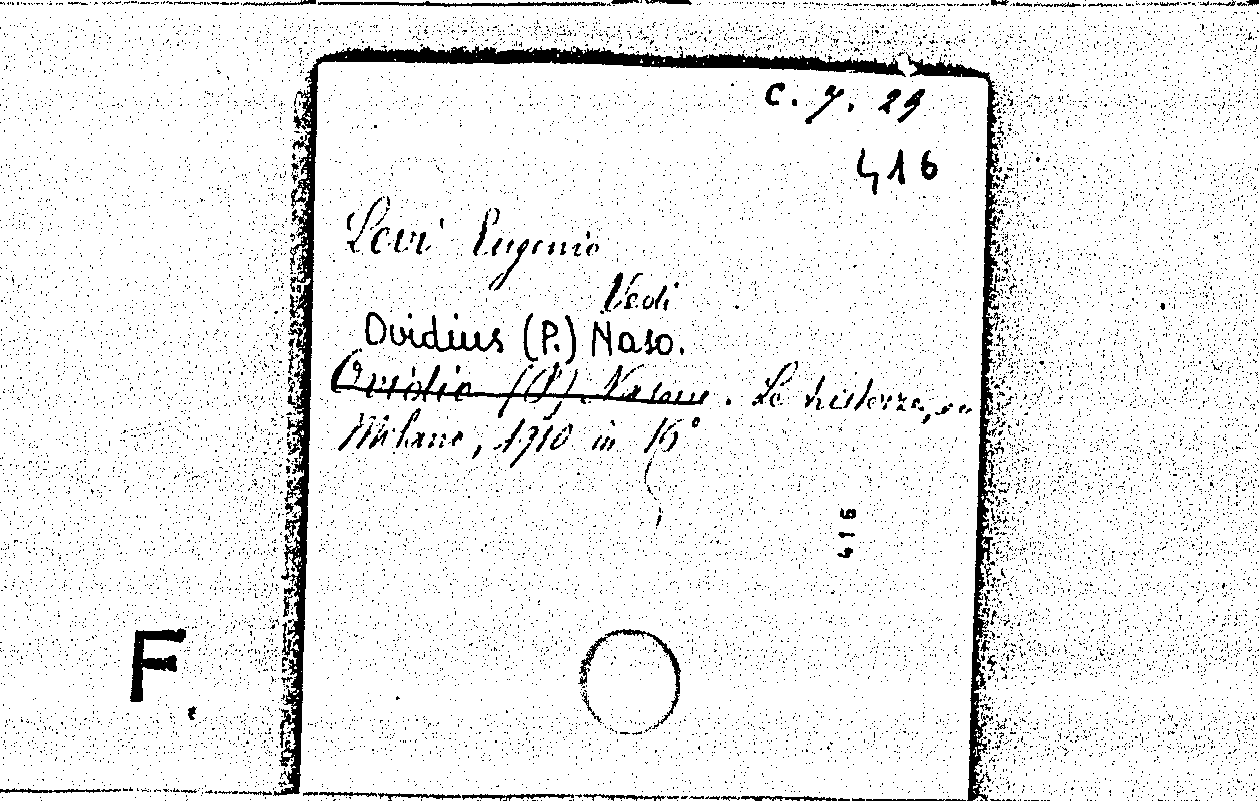 C. 7. 29
416
Levi Eugenio
Vedi
Ovidius (P.) Naso.
Ovidio (P.) Nasone. Le tristezze,
Milano, 1910 in 16°
416
F.